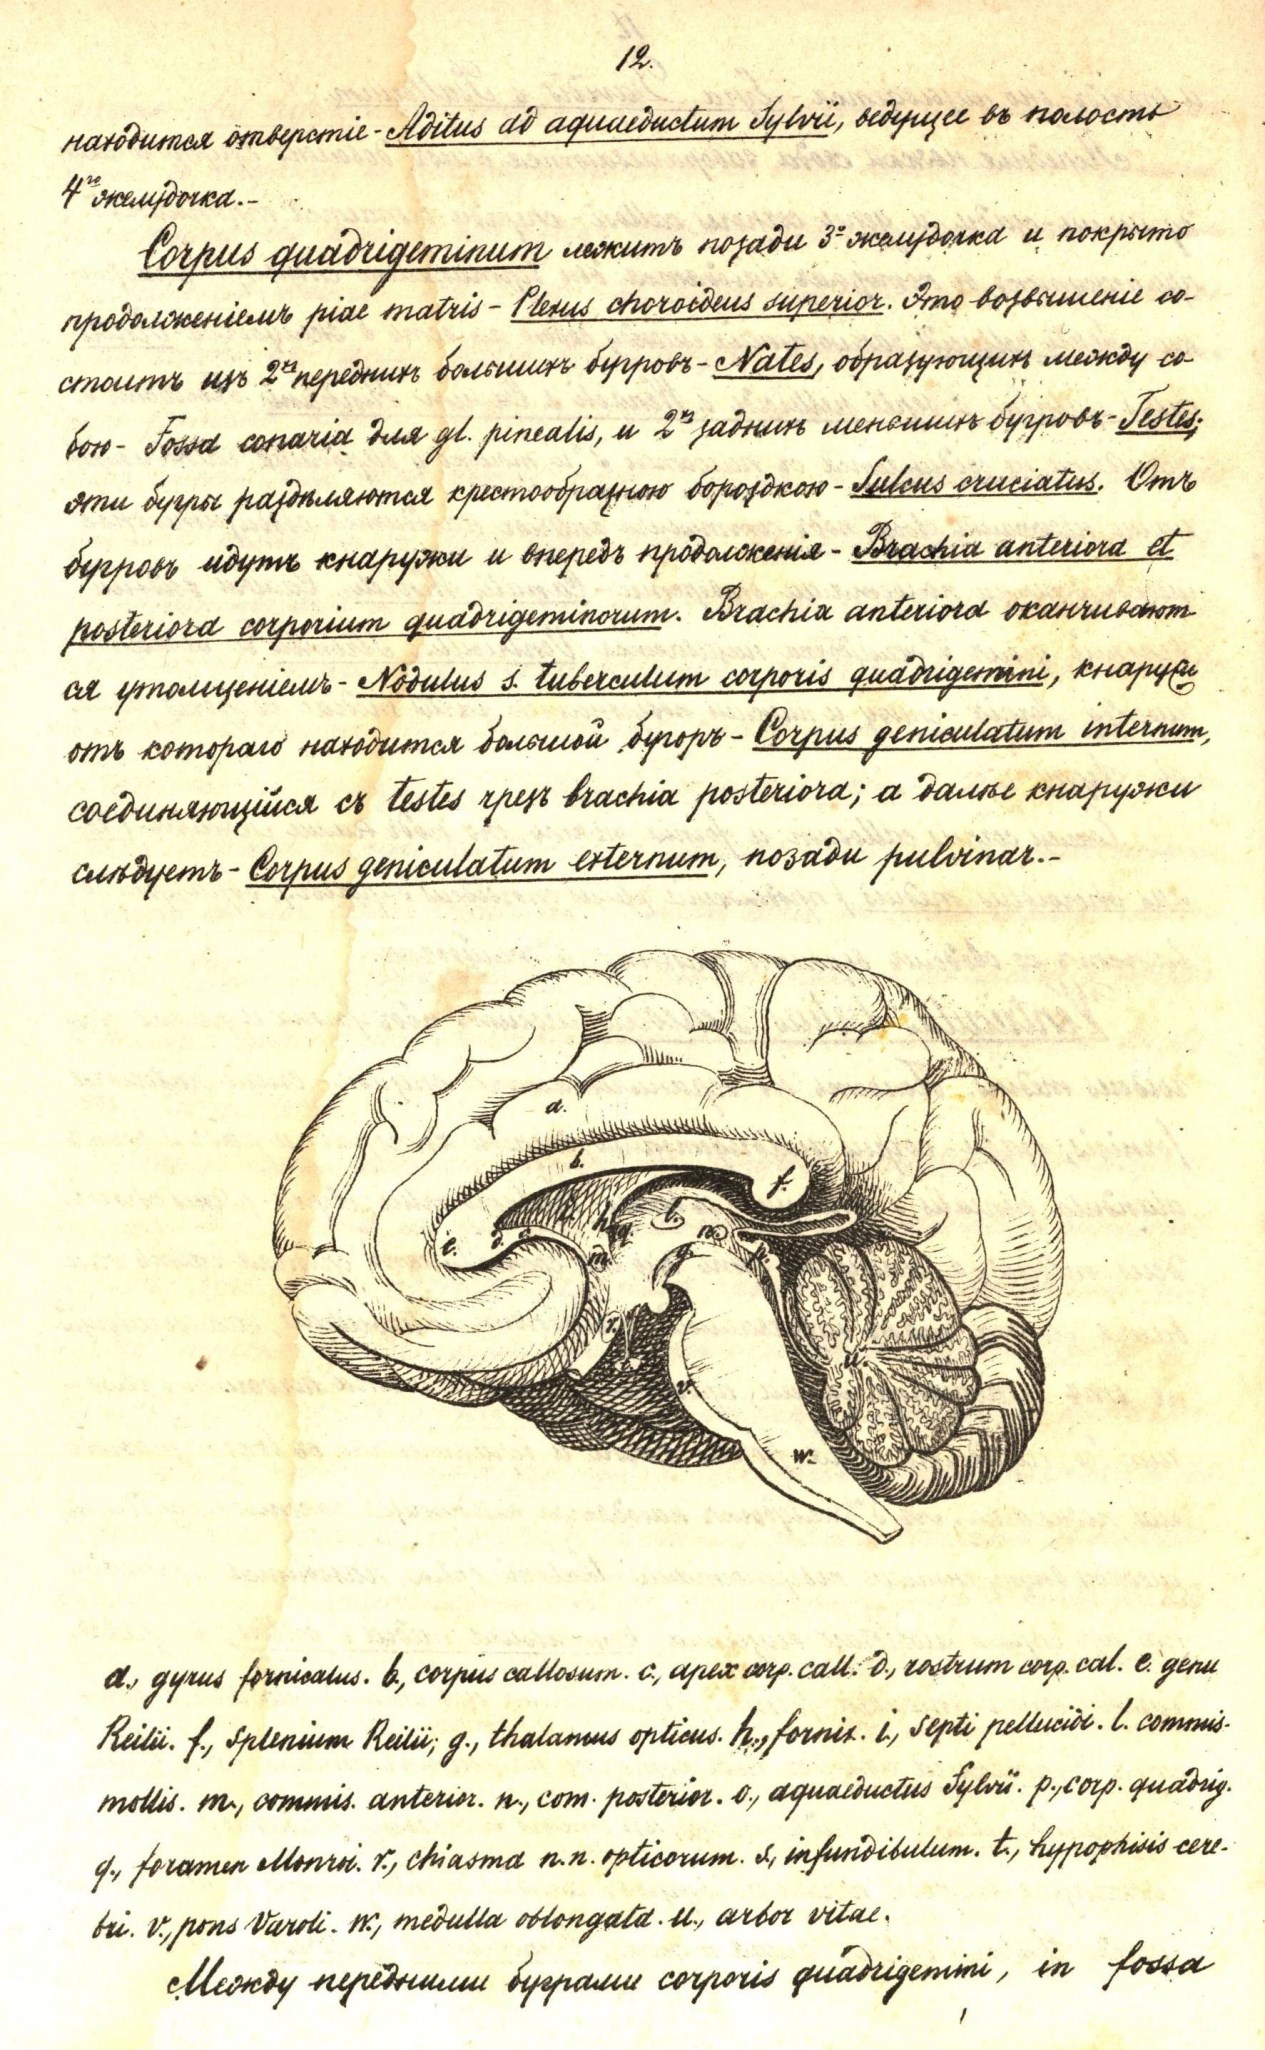 12.
находится отверстіе - Aditus ad aquaeductum Sylvii, ведущее въ полость
4го желудочка. -
Corpus quadrigeminum лежитъ позади 3го желудочка и покрыто
продолженіемъ piae matris - Plexus choroideus superior. Это возвышеніе со-
стоитъ изъ 2хъ переднихъ большихъ бугровъ - Nates, образующихъ между со-
бою - Fossa conaria для gl. pinealis, и 2хъ заднихъ меньшихъ бугровъ - Testes;
эти бугры раздѣляются крестообразною бороздкою - Sulcus cruciatus. Отъ
бугровъ идутъ кнаружи и впередъ продолженія - Brachia anteriora et
posteriora corporium quadrigeminorum. Brachia anteriora оканчивают
ся утолщеніемъ - Nodulus s. tuberculum corporis quadrigemini, кнаружи
отъ котораго находится большой бугоръ - Corpus geniculatum internum,
соединяющійся съ testes чрезъ brachia posteriora; а далѣе кнаружи
слѣдуетъ - Corpus geniculatum externum, позади pulvinar. -
a.
b.
f.
h.
q.
l.
n.
e.
d.
c.
m.
g.
p.
r.
u.
v.
w.
a., gyrus fornicatus. b., corpus callosum. c., apex corp. call. d., rostrum corp. cal. e. genu
Reilii. f., splenium Reilii; g., thalamus opticus. h., fornix. i., septi pellucidi. l. commis-
mollis. m., commis. anterior. n., com. posterior. o., aquaeductus Sylvii. p., corp. quadrig.
q., foramen Monroi. r., chiasma n.n. opticorum. s., infundibulum. t., hypophisis cere-
bri. v., pons Varoli. w., medulla oblongata. u., arbor vitae.
Между передними буграми corporis quadrigemini, in fossa